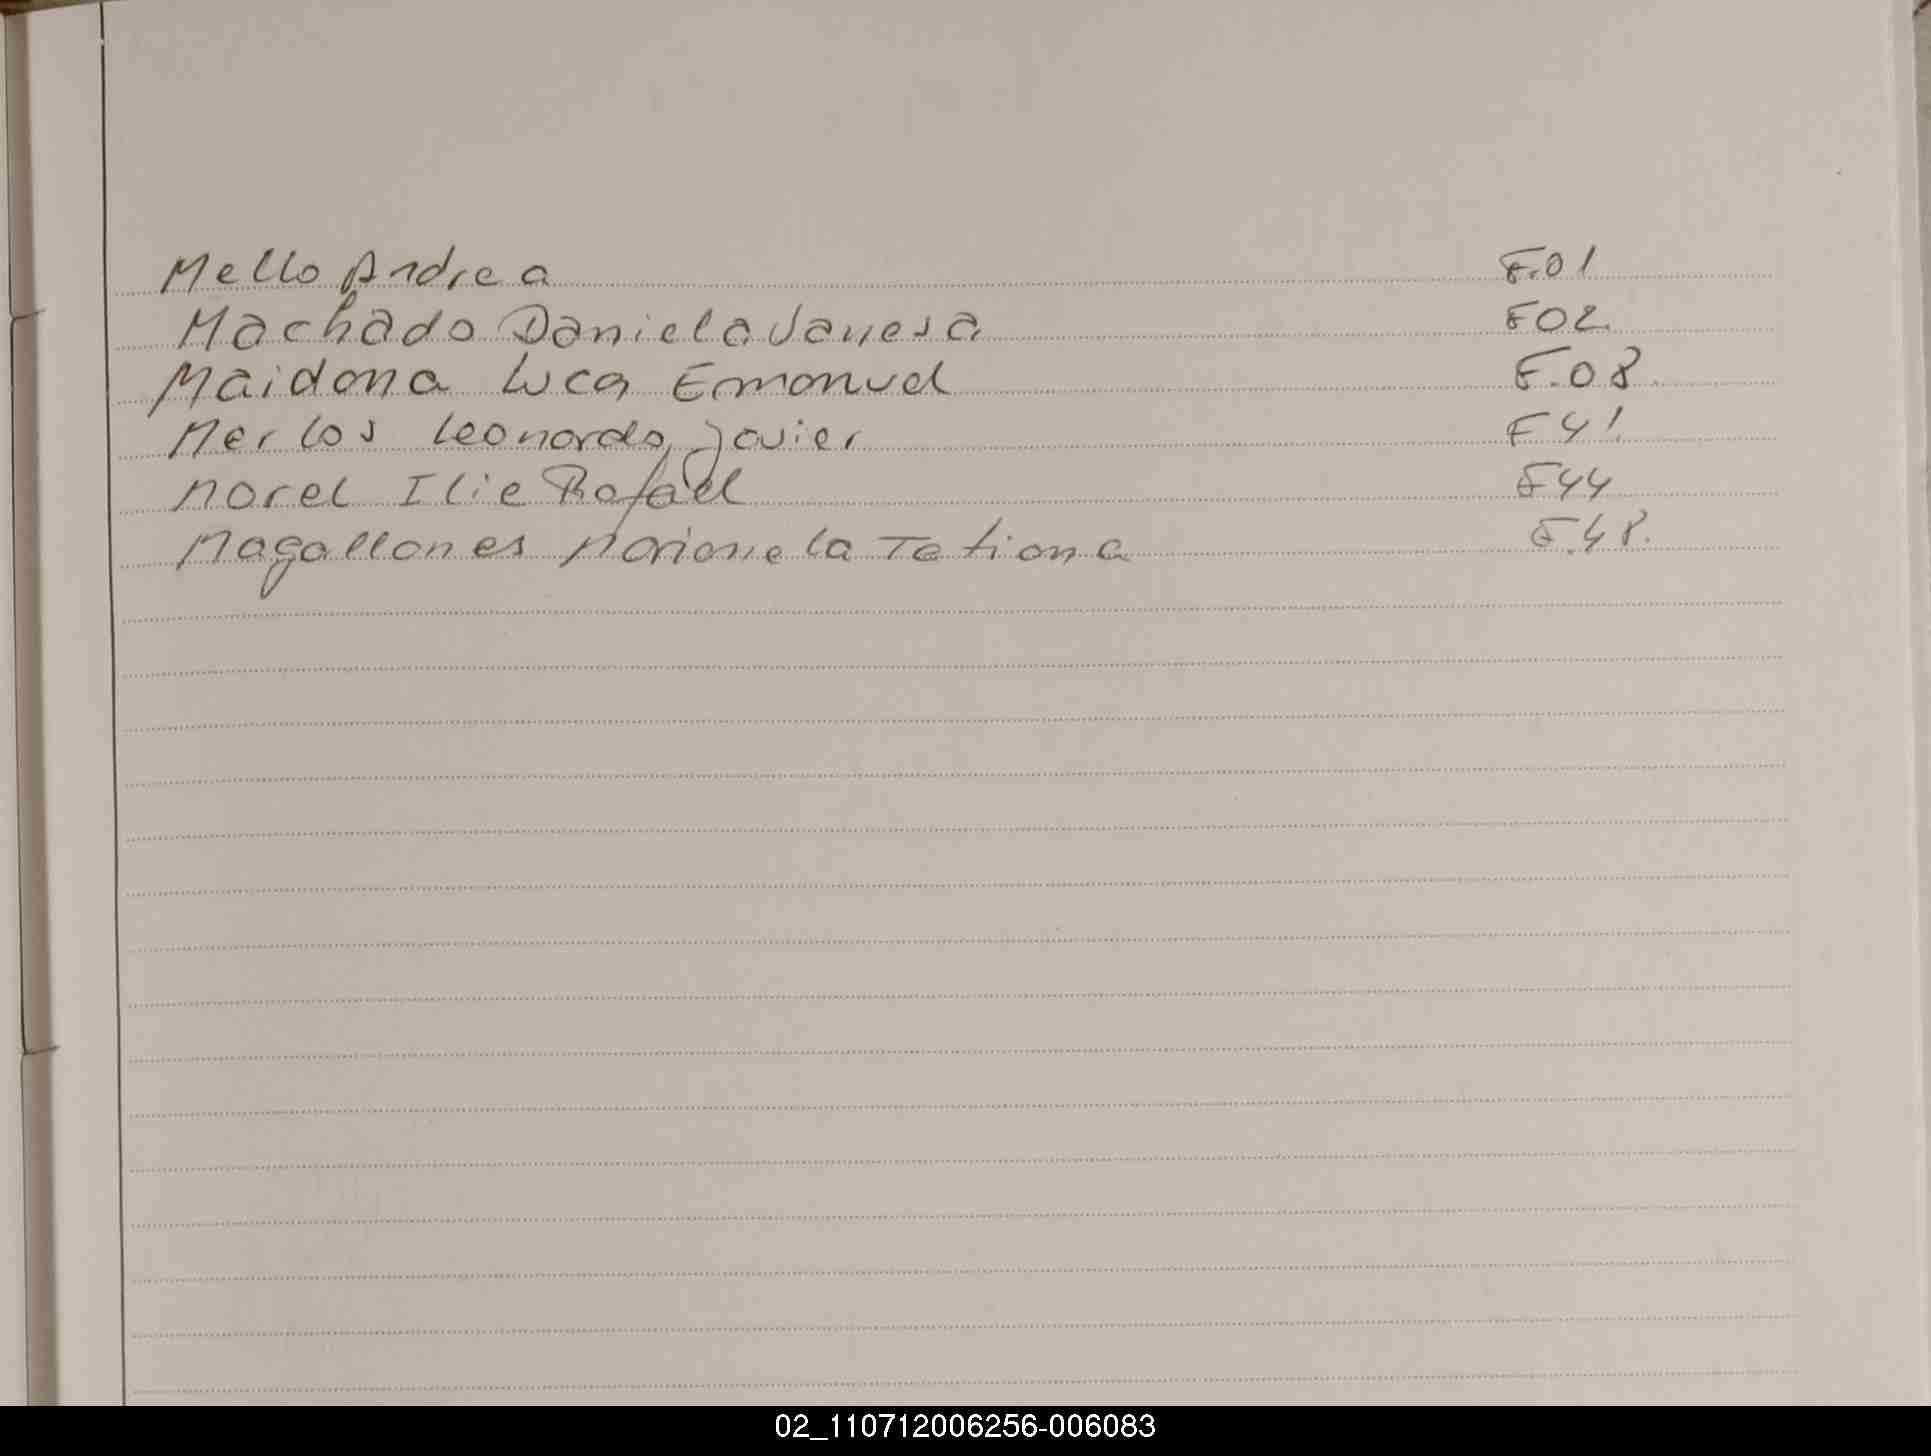 Mello Andrea F.01
Machado Daniela Vanesa F02.
Maidana Luca Emanuel F.08.
Merlos Leonardo Javier F41.
Morel Ilie Rafael F44
Magallones Marionela Tatiana F.48.
02_110712006256-006083